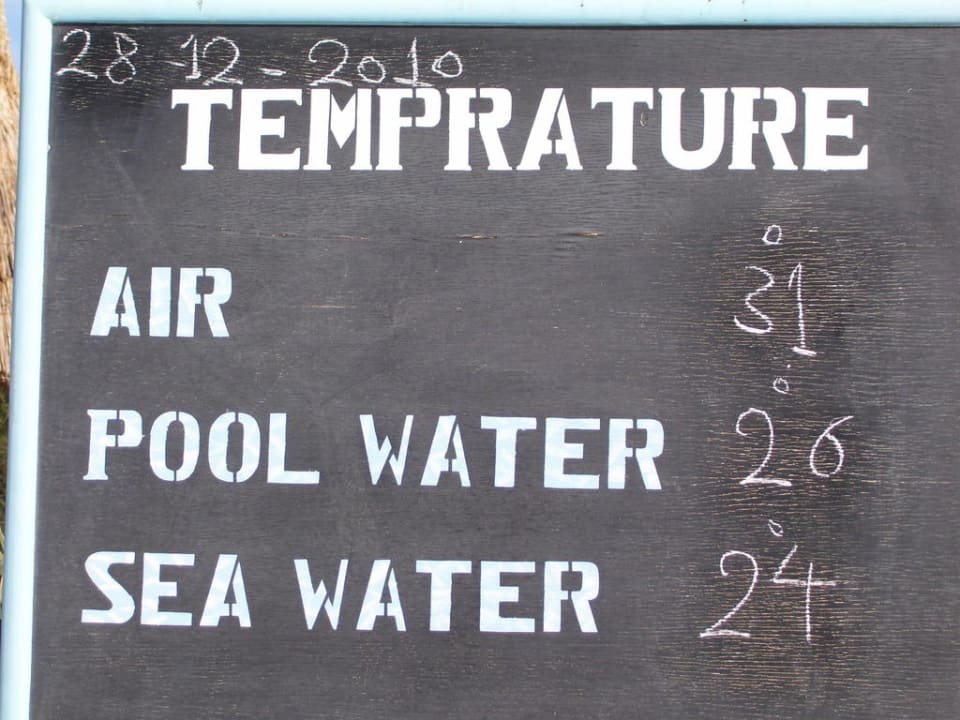 28-12-2010
TEMPRATURE
AIR 31°
POOL WATER 26°
SEA WATER 24°